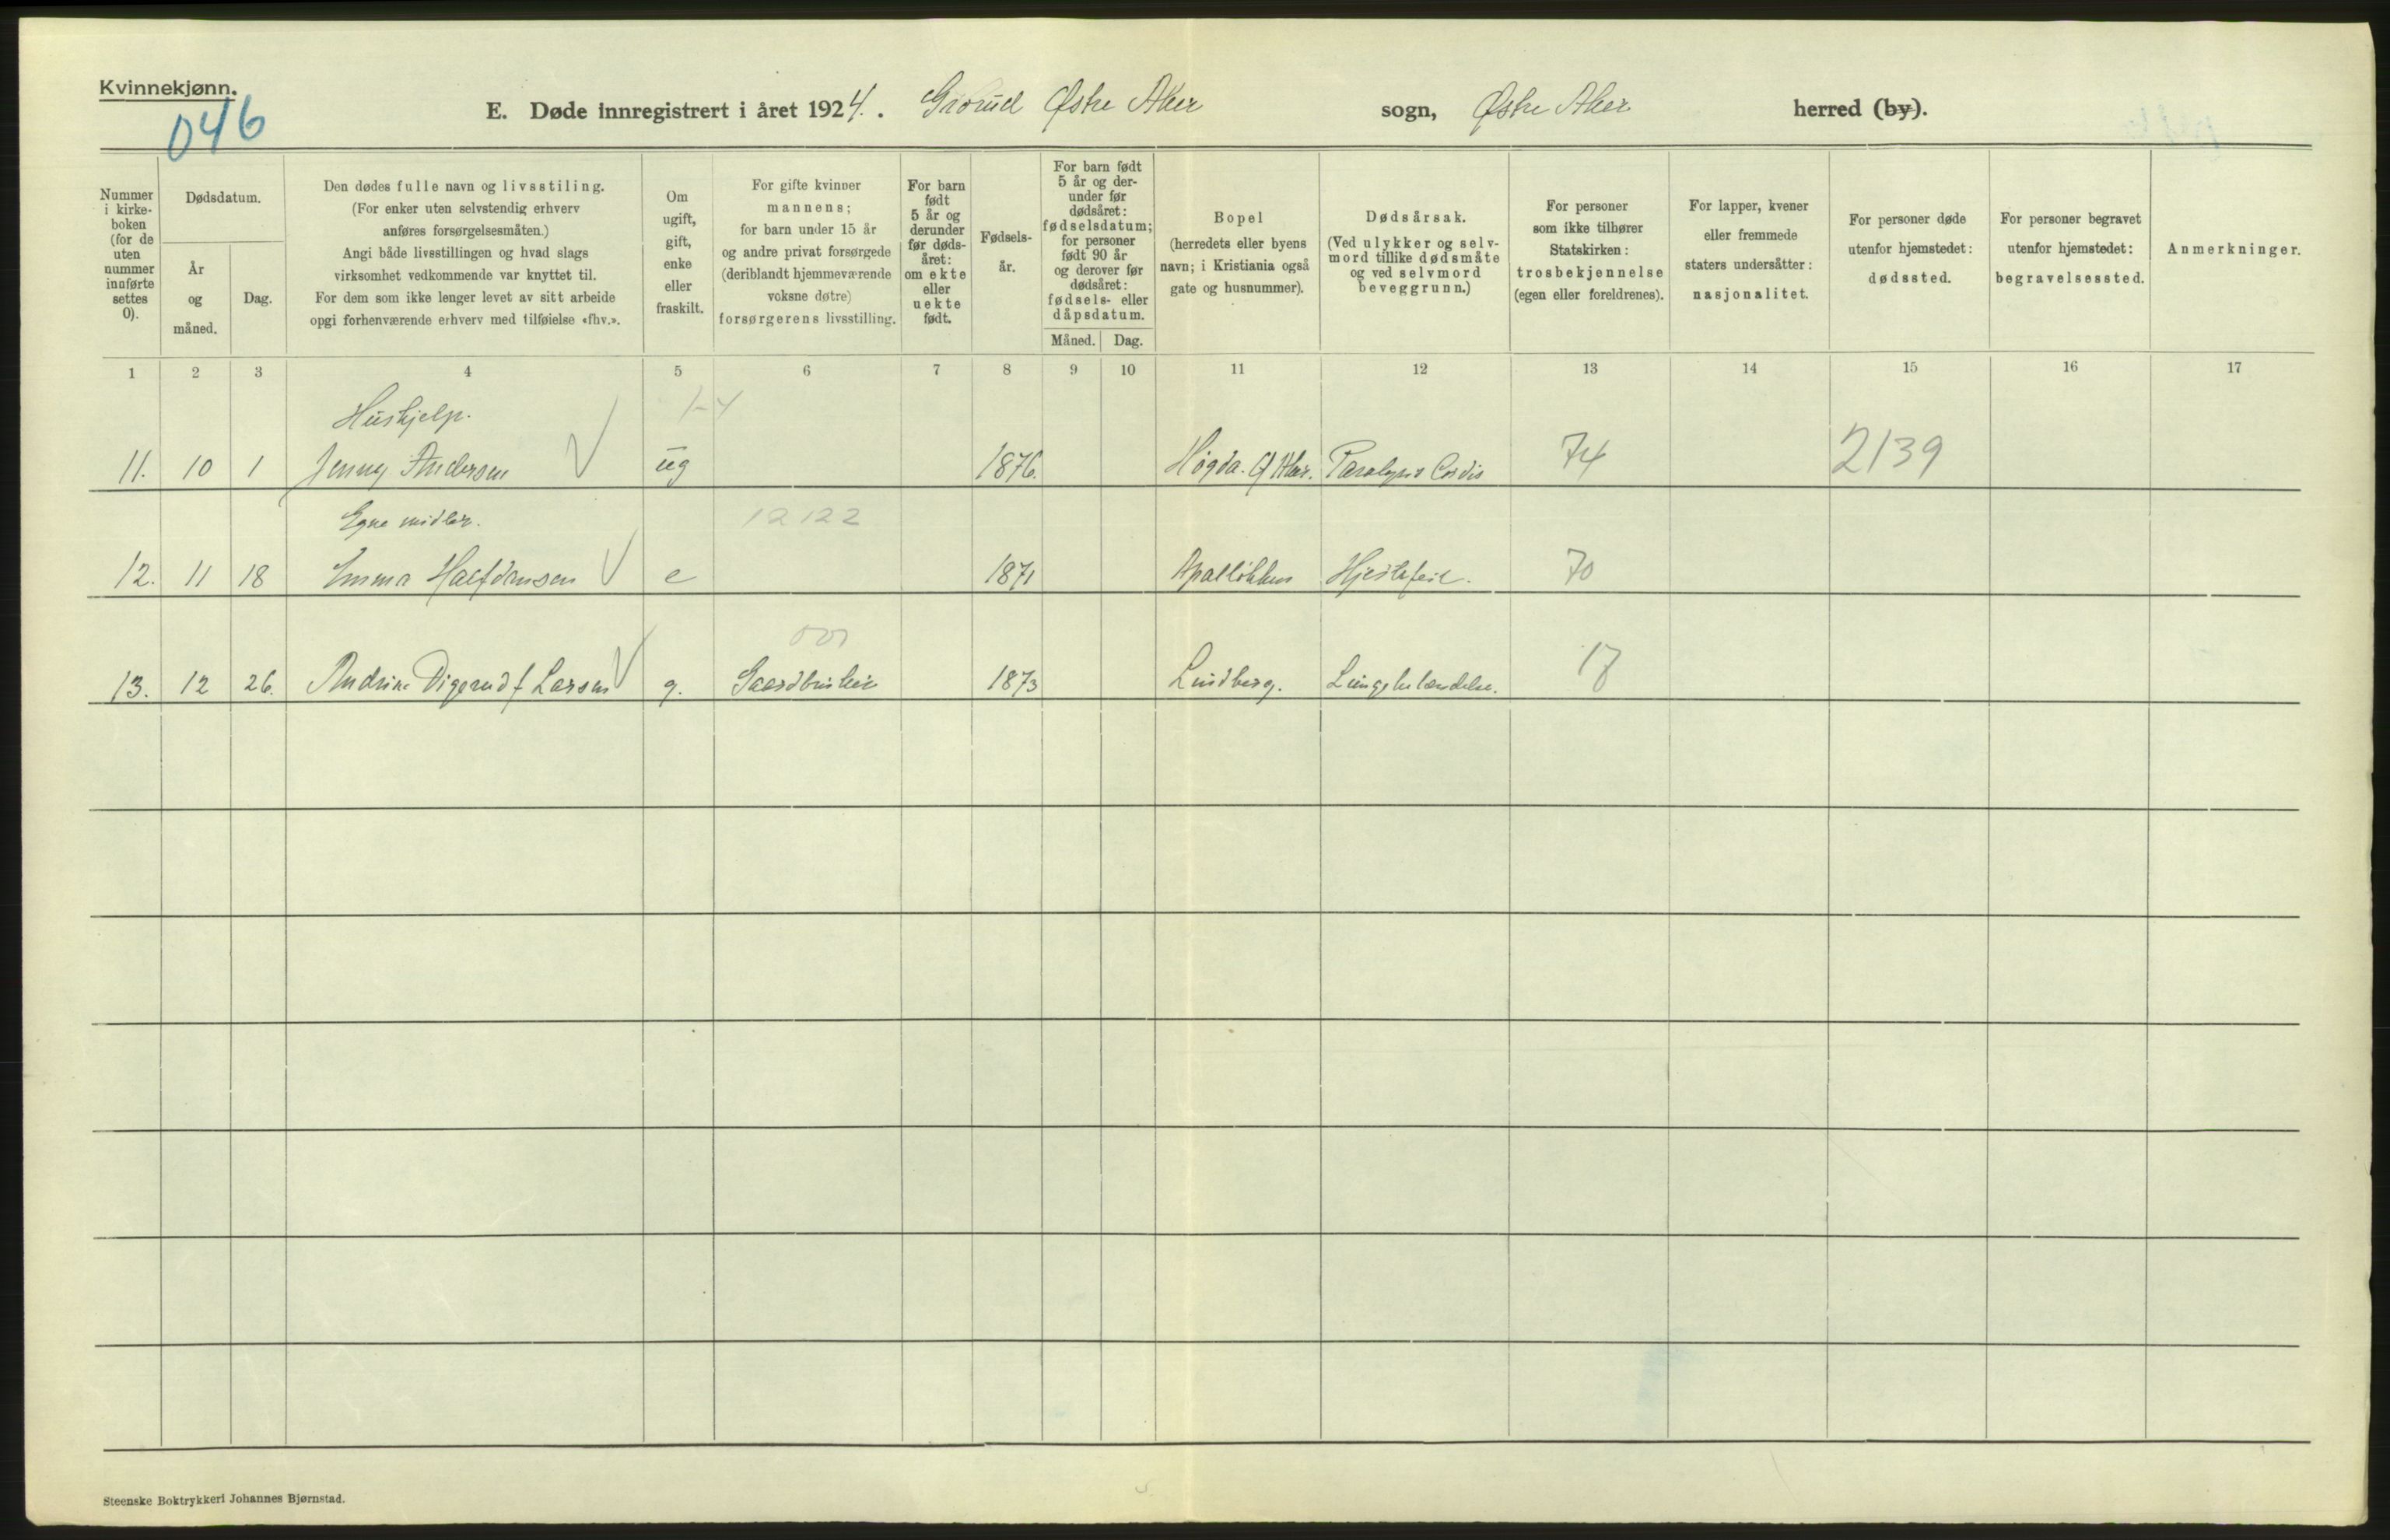 Kvinnekjønn.
046
E. Døde innregistrert i året 1924. Grorud Østre Aker sogn, Østre Aker herred (by).
Nummer
i kirke-
boken
(for de
uten
nummer
innførte
settes
0).
Dødsdatum.
År
og
måned.
Dag.
Den dødes fulle navn og livsstiling.
(For enker uten selvstendig erhverv
anføres forsørgelsesmåten.)
Angi både livsstillingen og hvad slags
virksomhet vedkommende var knyttet til.
For dem som ikke lenger levet av sitt arbeide
opgi forhenværende erhverv med tilføielse «fhv.».
Om
ugift,
gift,
enke
eller
fraskilt.
For gifte kvinner
mannens;
for barn under 15 år
og andre privat forsørgede
(deriblandt hjemmeværende
voksne døtre)
forsørgerens livsstilling.
For barn
født
5 år og
derunder
før døds-
året:
om ekte
eller
uekte
født.
Fødsels-
år.
For barn født
5 år og der-
under før
dødsåret:
fødselsdatum;
for personer
født 90 år
og derover før
dødsåret:
fødsels- eller
dåpsdatum.
Måned. Dag.
Bopel
(herredets eller byens
navn; i Kristiania også
gate og husnummer).
Dødsårsak.
(Ved ulykker og selv-
mord tillike dødsmåte
og ved selvmord
beveggrunn.)
For personer
som ikke tilhører
Statskirken:
trosbekjennelse
(egen eller foreldrenes).
For lapper, kvener
eller fremmede
staters undersåtter:
nasjonalitet.
For personer døde
utenfor hjemstedet:
dødssted.
For personer begravet
utenfor hjemstedet:
begravelsessted.
Anmerkninger.
1 2 3 4 5 6 7 8 9 10 11 12 13 14 15 16 17
Hushjelp. 1-4
11. 10 1 Jenny Andersen ug 1876. Høgda. Ø Aker. Paralysis Cordis 74 2139
Egne midler. 12122
12. 11 18 Emma Halfdansen e 1871 Apalløkken Hjertefeil. 70
13. 12 26. Andrine Digerud f Larsen g. Gaardbruker 1873 Lindberg. Lungebetændelse. 17
Steenske Boktrykkeri Johannes Bjørnstad.